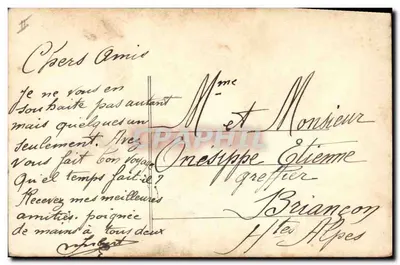 II
Chers Amis
Je ne vous en
souhaite pas autant
mais quelques un
seulement. Avez
vous fait bon voyage
Qu'el temps fait-il ?
Recevez mes meilleures
amitiés. poignée
de mains à tous deux
Mme
et Monsieur
Onésippe Etienne
greffier
Briançon
Htes Alpes